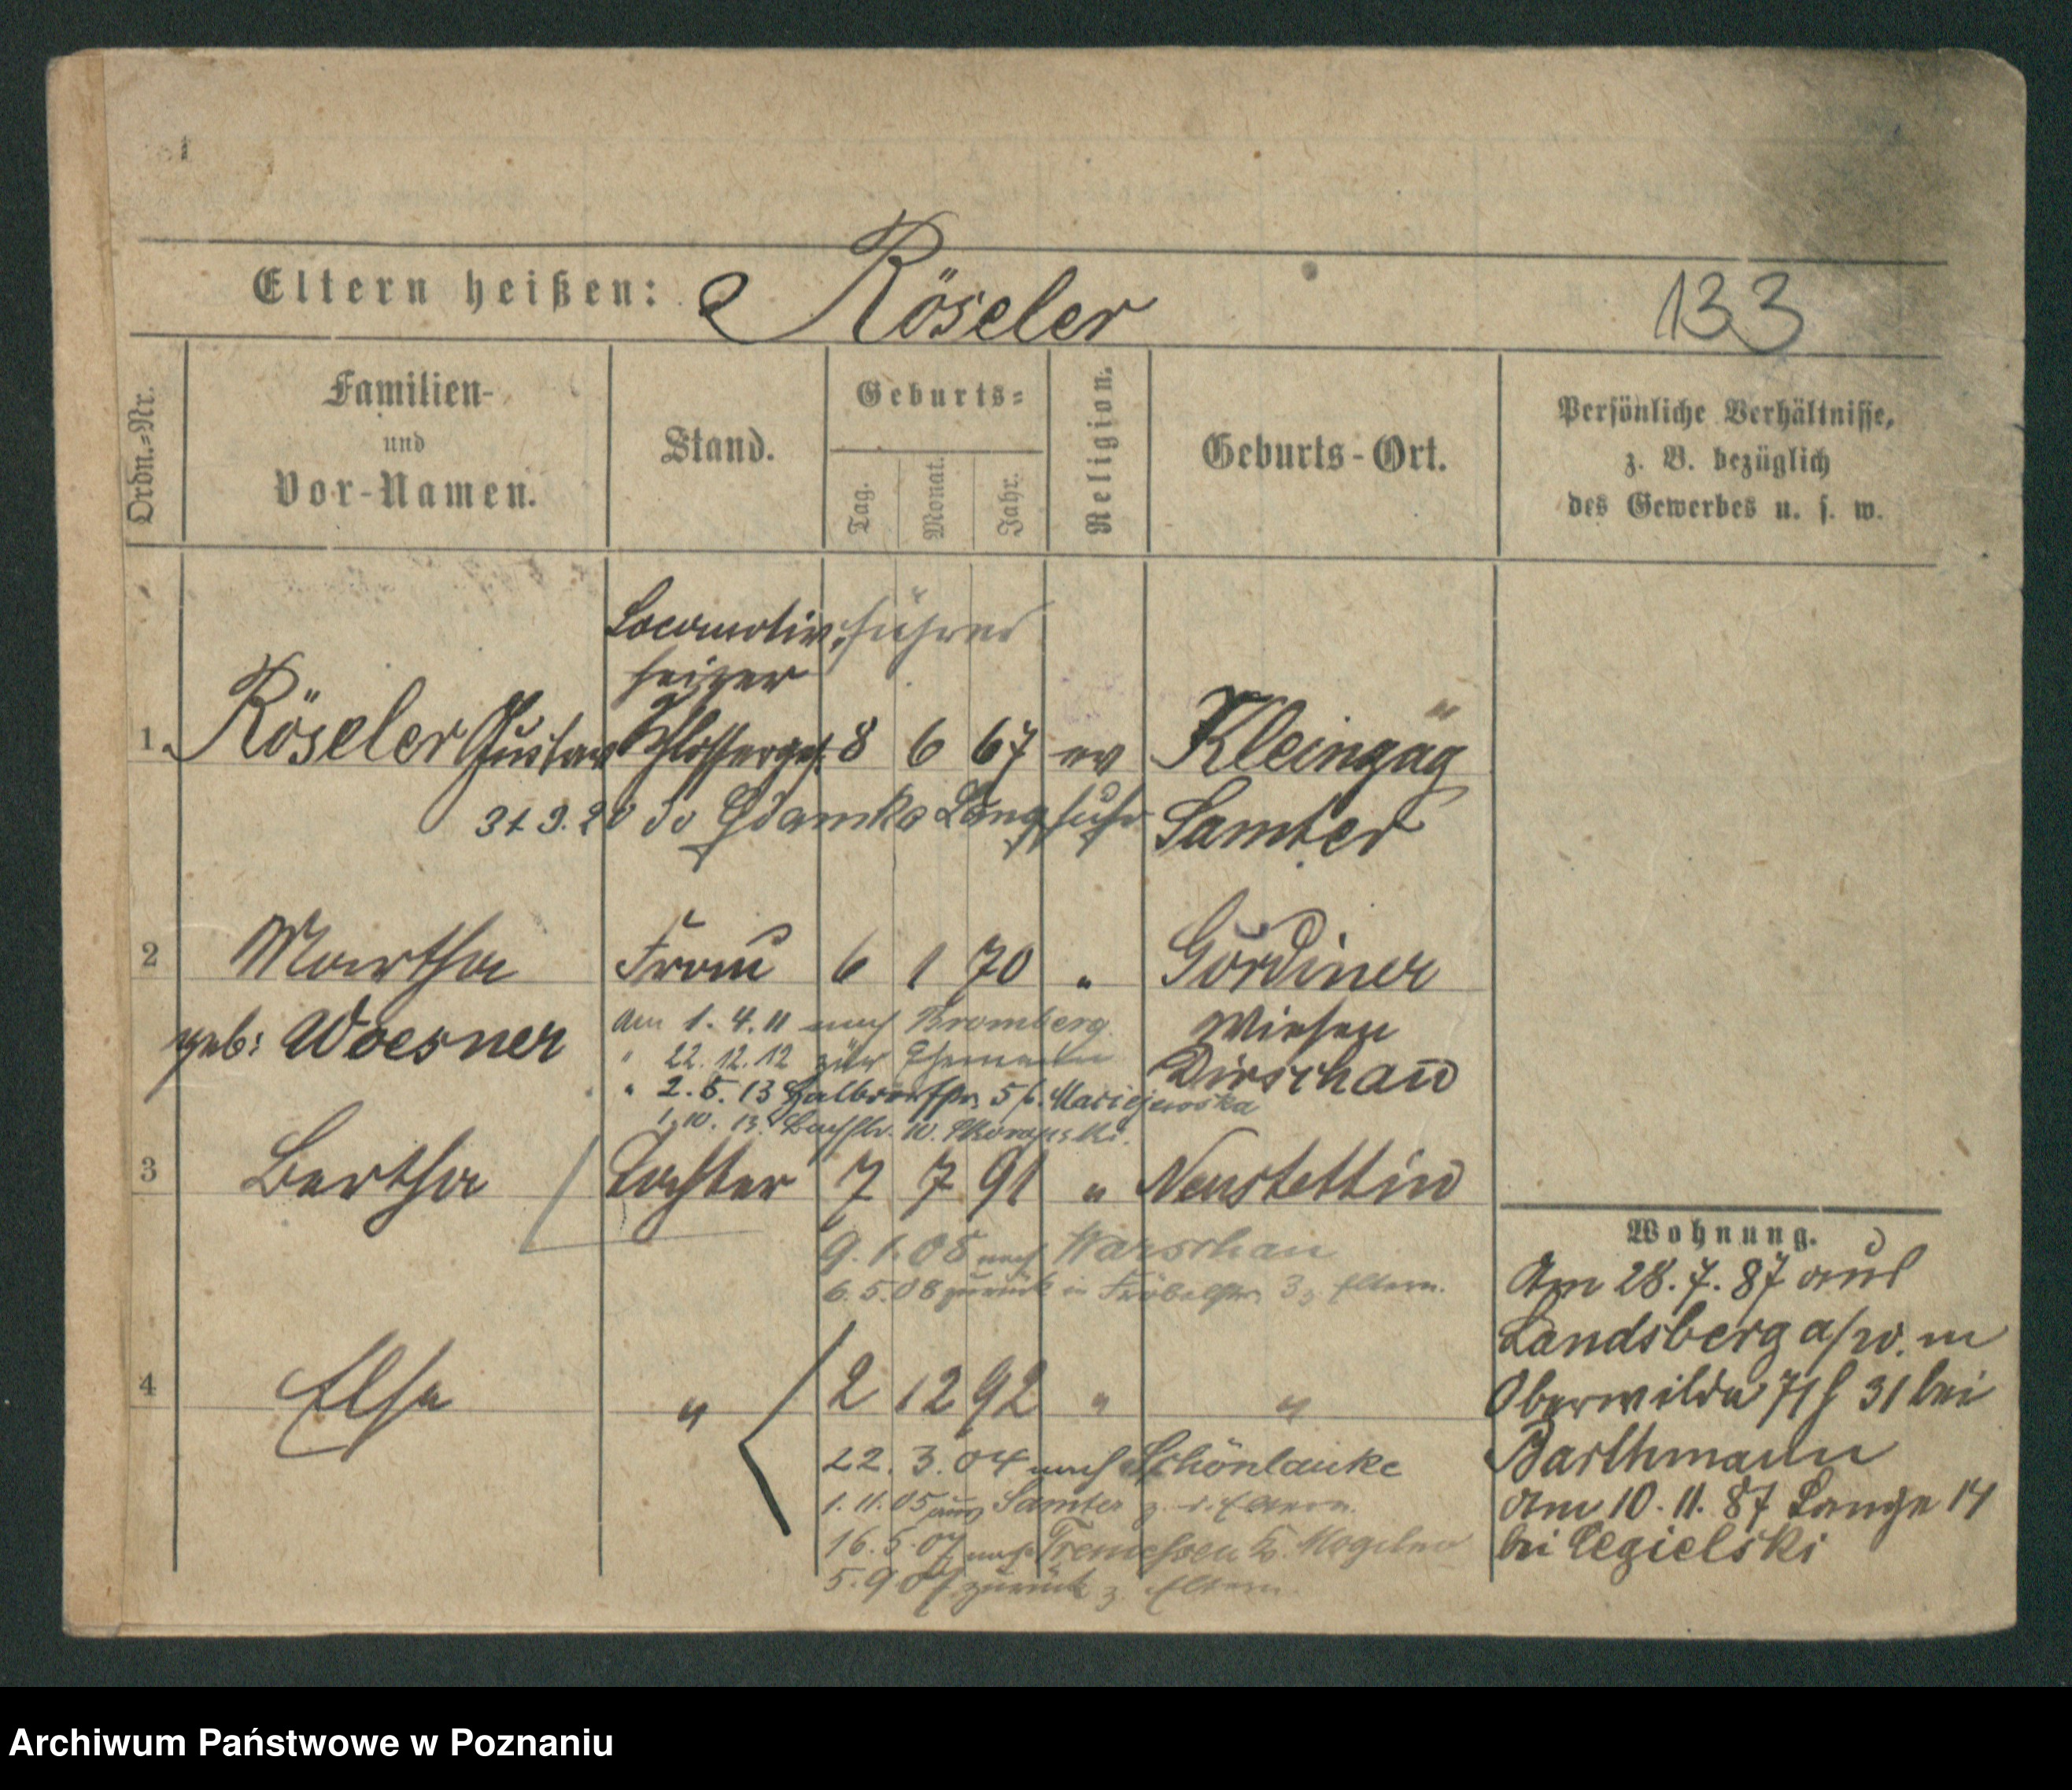 Eltern heißen: Röseler
133
Ordn.-Nr.
Familien-
und
Vor-Namen.
Stand.
Geburts-
Tag.
Monat.
Jahr.
Religion.
Geburts-Ort.
Persönliche Verhältnisse,
z. B. bezüglich
des Gewerbes u. s. w.
Locomotivführer
heizer
1. Röseler Gustav Schlosserges. 8 6 67 ev Kleingäg
31 3. 20 do Gdańska Langfuhr Samter
2 Martha Frau 6 1 70 " Gordiner
geb: Woesner
Am 1. 4. 11 nach Bromberg.
Wiesen
" 22. 12. 12 zum Ehemann
Dirschau
" 2. 5. 13 5 b. Maciejewska
1. 10. 13. Bachstr. 10.
3 Bertha Tochter 7 7 91 " Neustettin
9. 1. 08 nach Warschau
6. 5. 08 zurück in Fröbelstr. 3 z. Eltern.
4 Elsa " 2 12 92 " "
22. 3. 04 nach Schönlanke
1. 11. 05 aus Samter z. d. Eltern.
16. 5. 07 nach Tremessen K. Mogilno
5. 9 07 zurück z. Eltern.
Wohnung.
Am 28. 7. 87 aus
Landsberg a/W. in
Oberwilda 71 31 bei
Barthmann
Am 10. 11. 87 Lange 14
bei Cegielski
Archiwum Państwowe w Poznaniu